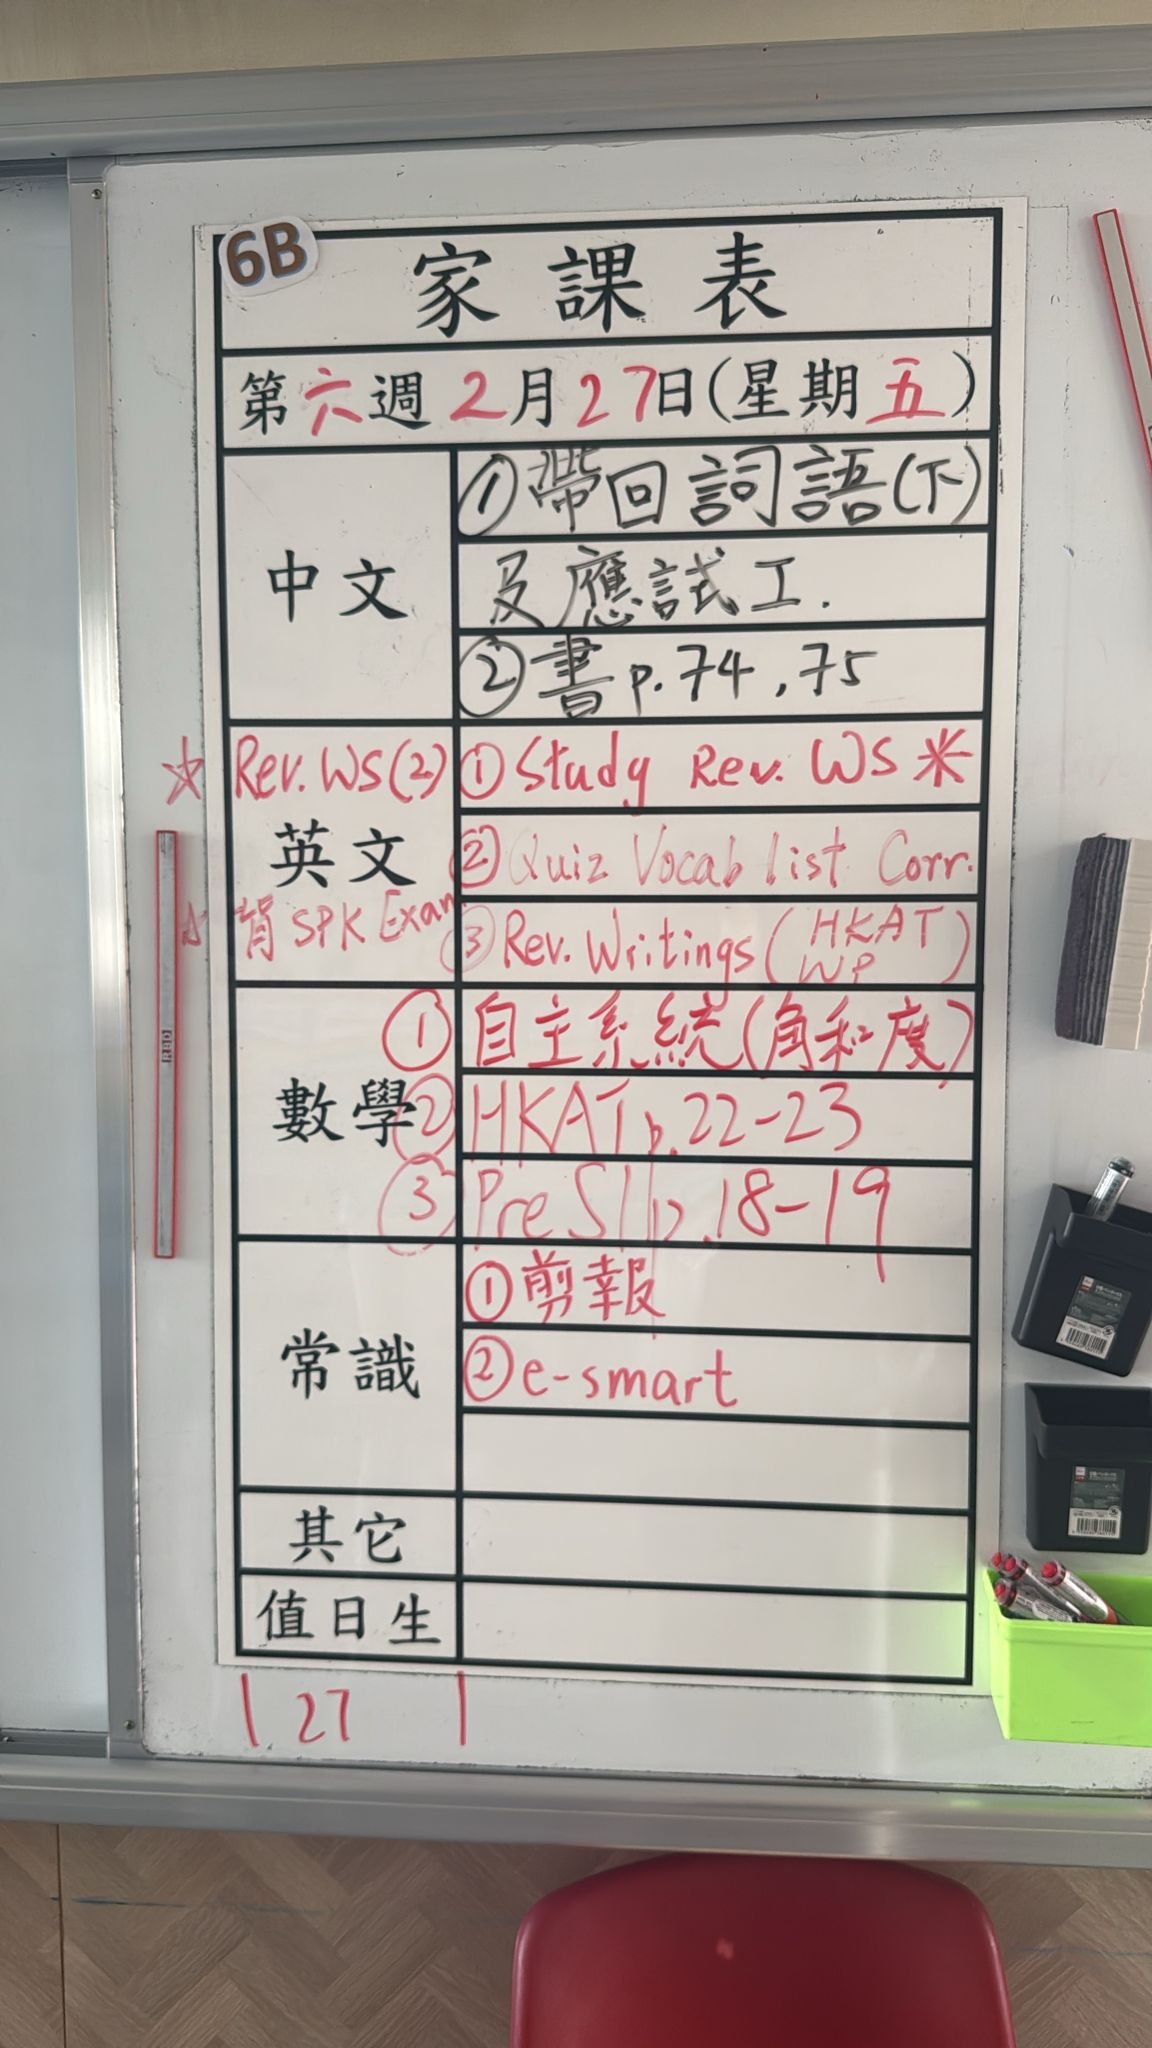 6B
家課表
第六週2月27日(星期五)
中文
①帶回詞語(下)
及應試工.
②書p.74,75
☆ Rev.WS(2)
英文
☆ 背SPK Exam
①Study Rev. WS ✳
②Quiz Vocab list Corr.
③Rev. Writings (HKAT
WP)
數學
①自主系統(角和度)
②HKAT p.22-23
③Pre S1 p.18-19
常識
①剪報
②e-smart
其它
值日生
| 27 |